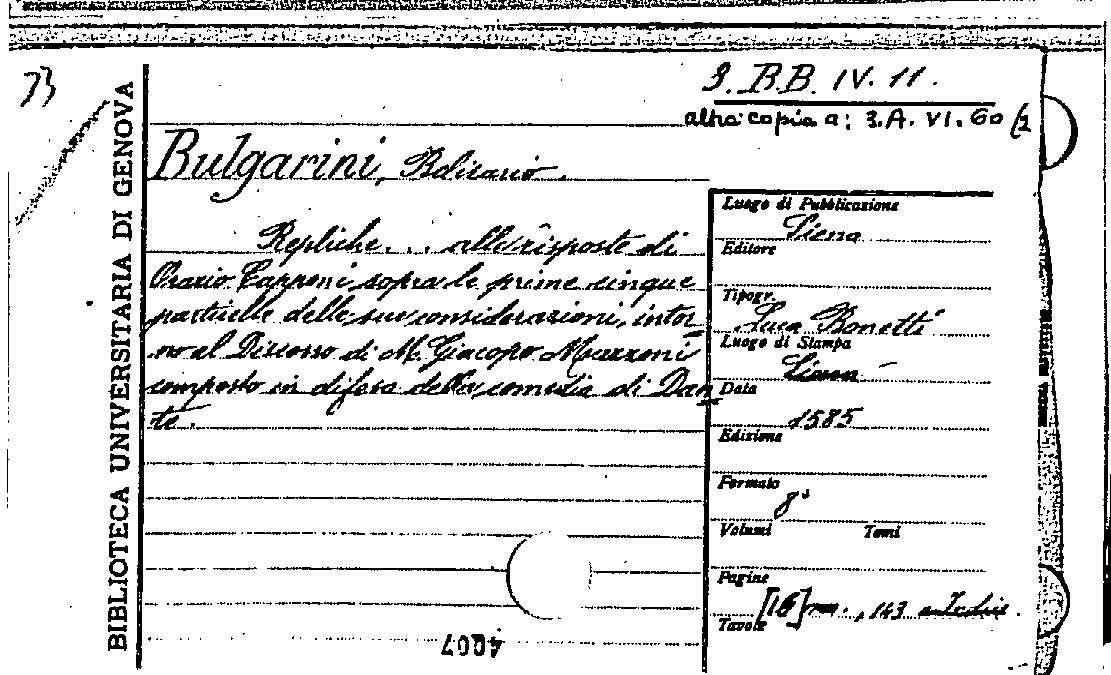 73
3. B.B. IV. 11.
altra copia a: 3.A. VI. 60 (2
BIBLIOTECA UNIVERSITARIA DI GENOVA
Bulgarini, Belisario.
Repliche... alle risposte di
Orazio Capponi sopra le prime cinque
particelle delle sue considerazioni, intor-
no al Discorso di M. Giacopo Mazzoni
composto in difesa della comedia di Dan-
te.
Luogo di Pubblicazione
Siena
Editore
Tipogr.
Luca Bonetti
Luogo di Stampa
Siena
Data
1585
Edizione
Formato
8°
Volumi Tomi
Pagine
[16] nn., 143
Tavole
4007